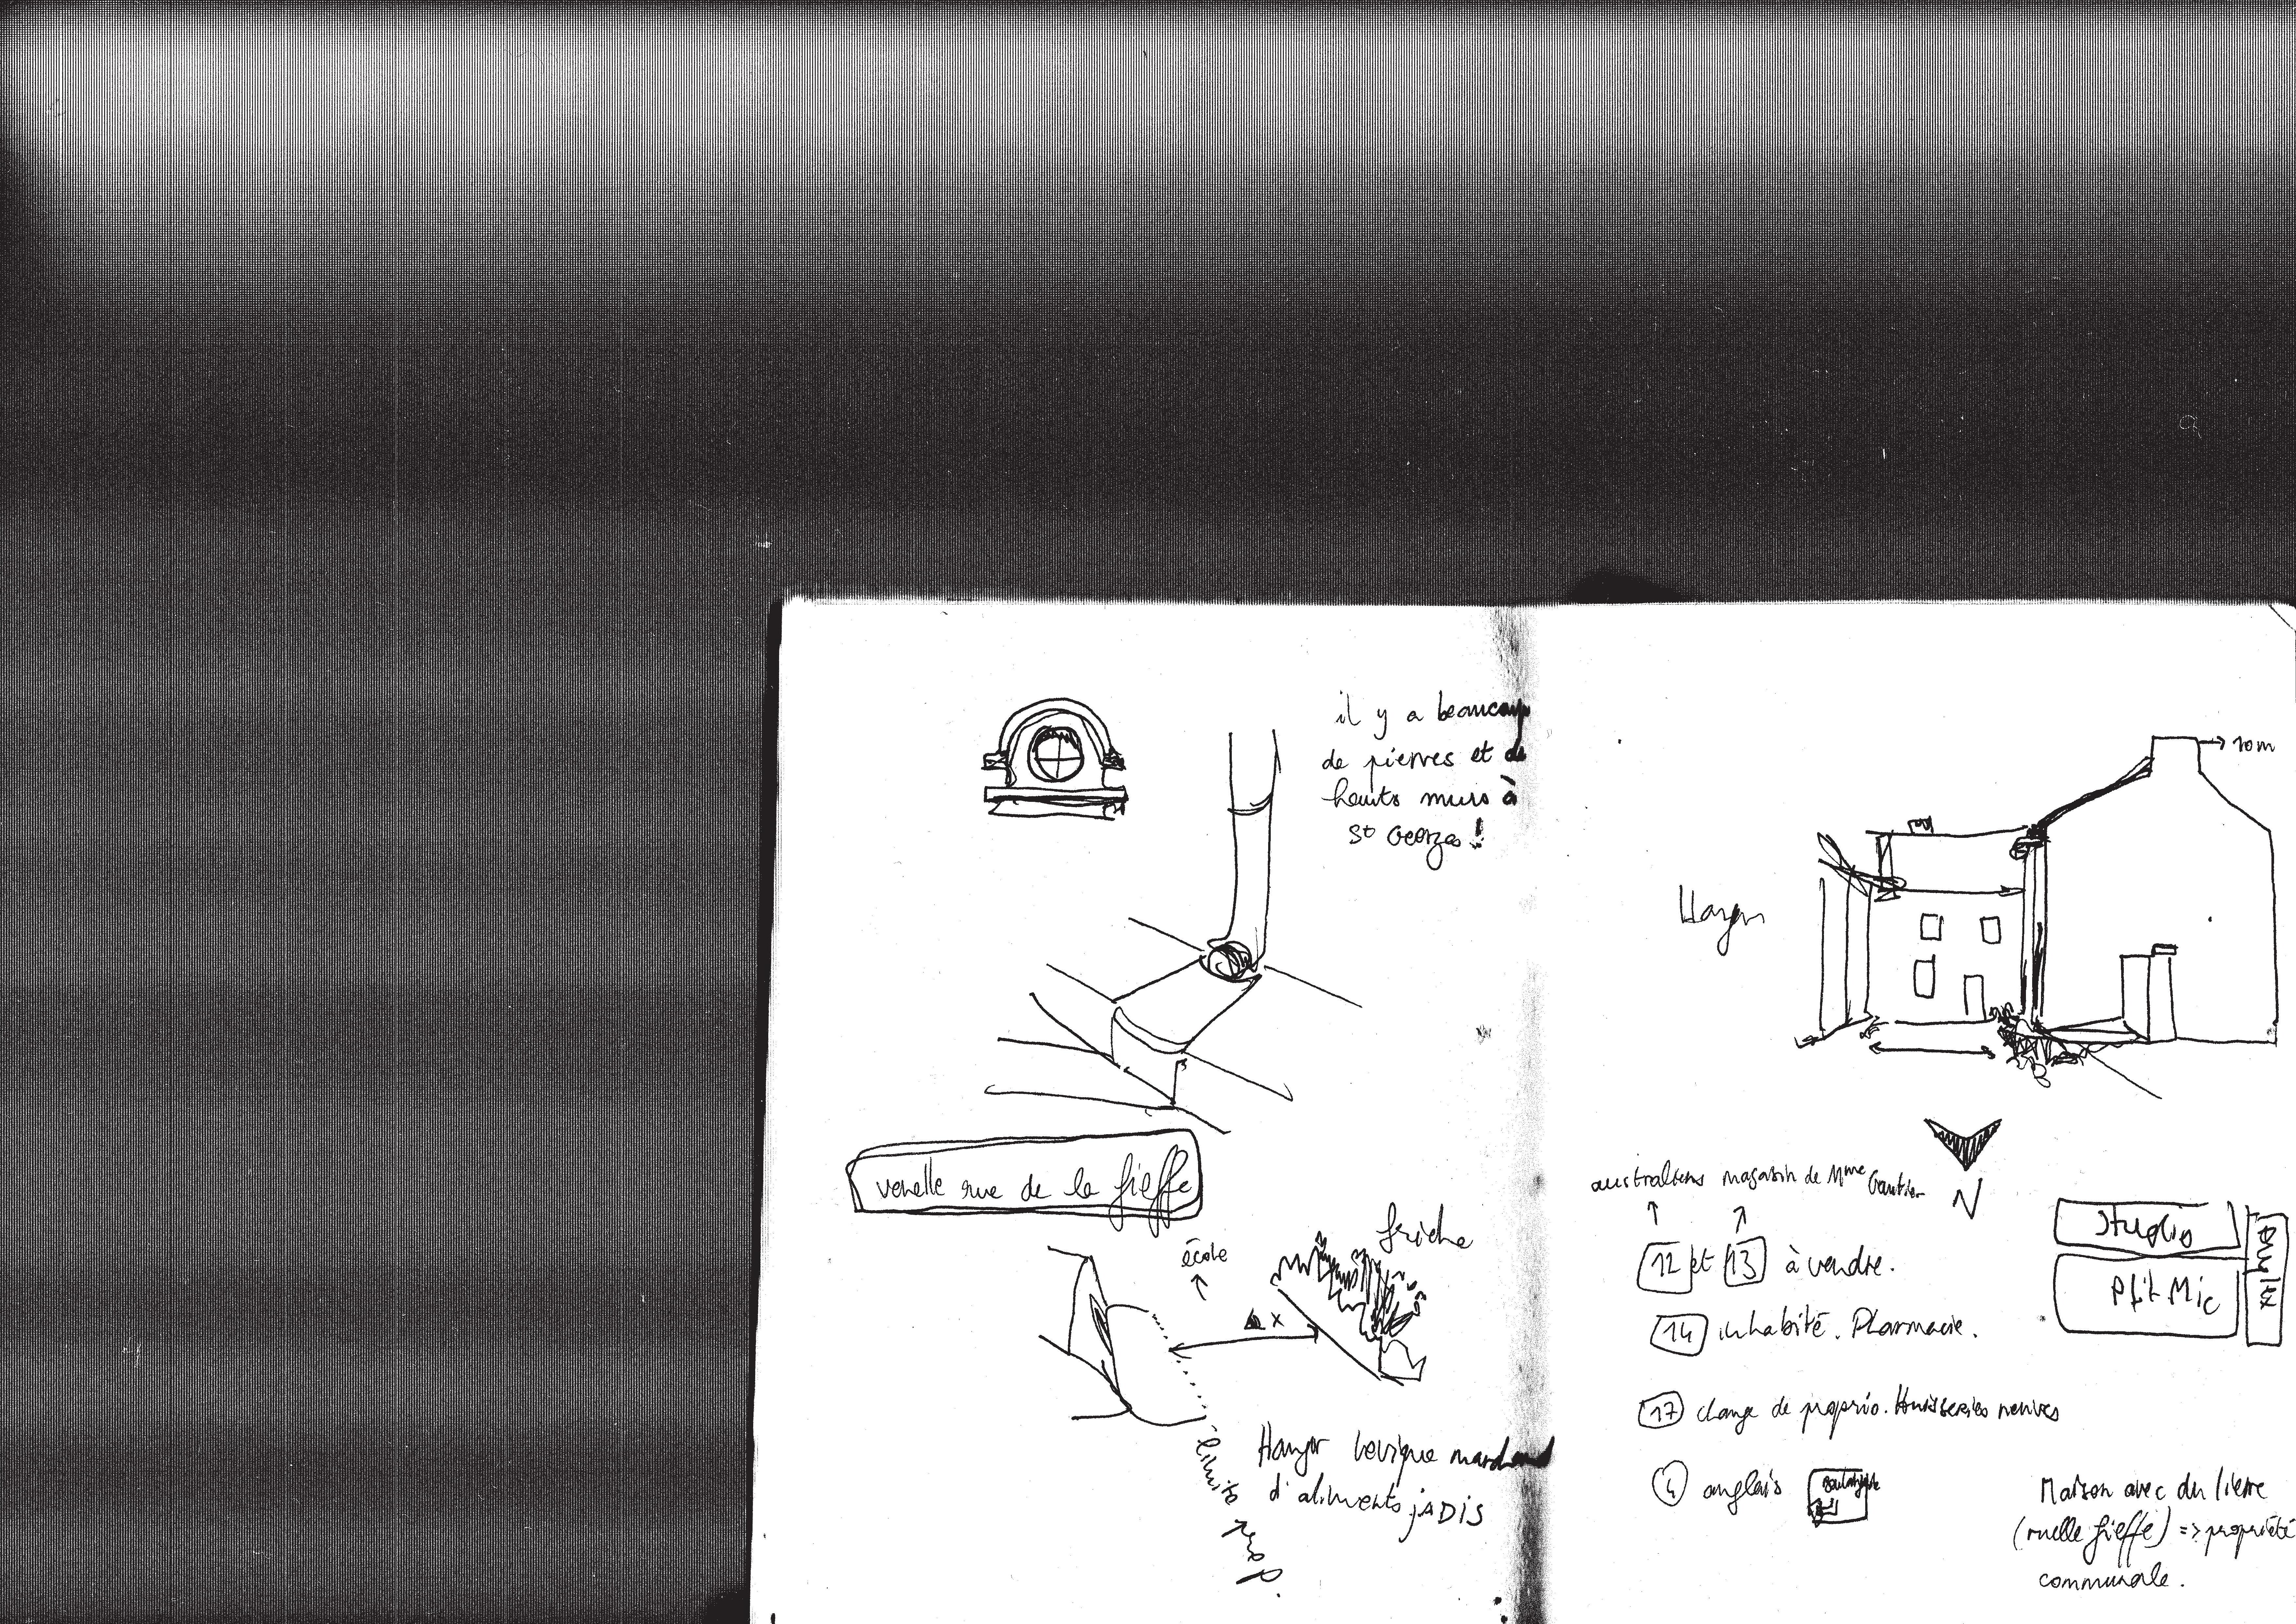 il y a beaucoup
de pierres et de
hauts murs à
St Georges !
venelle rue de la fieffe
école
friche
x
limite prop.
Hangar marchand
d'aliments jADIS
10m
N
australiens magasin de Mme Gautier
12 et 13 à vendre.
14 inhabité. Pharmacie.
17 change de proprio. Huisseries neuves
4 anglais
boulangerie
studio
Ptit Mic
Maison avec du lierre
(ruelle fieffe) => propriété
communale.